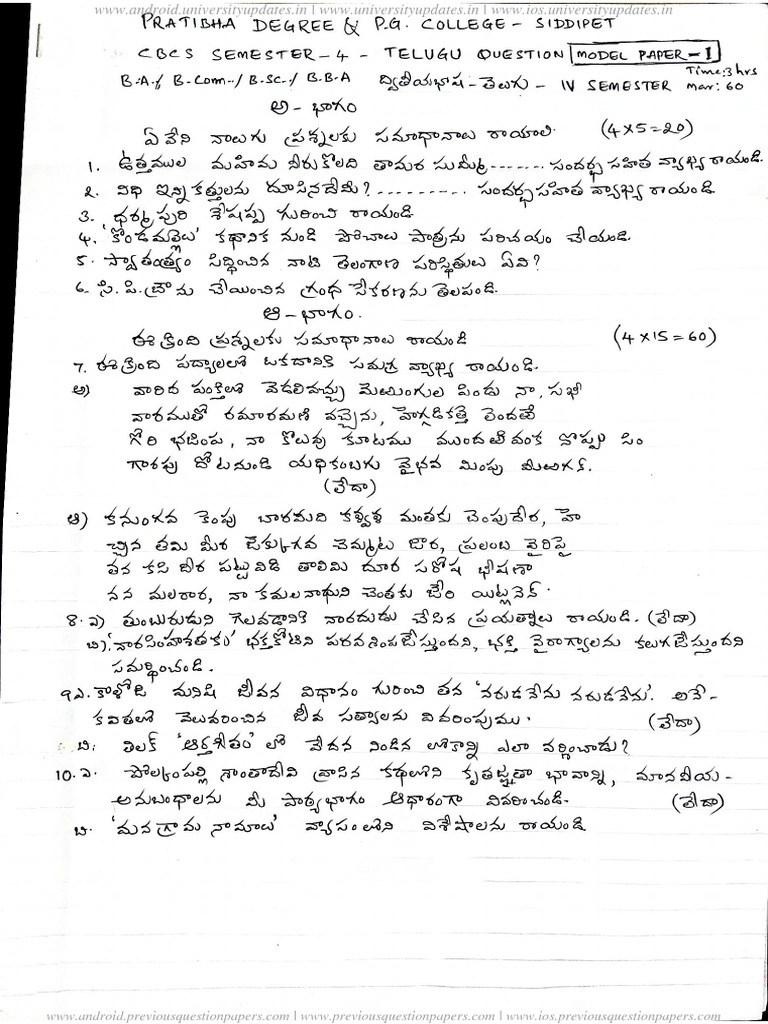 www.android.universityupdates.in | www.universityupdates.in | www.ios.universityupdates.in
PRATIBHA DEGREE & P.G. COLLEGE - SIDDIPET
CBCS SEMESTER - 4 - TELUGU QUESTION MODEL PAPER - 1
Time: 3 hrs
B.A./ B.Com../ B.SC./ B.B.A ద్వితీయభాష - తెలుగు - IV SEMESTER Mar: 60
అ - భాగం
ఏవేని నాలుగు ప్రశ్నలకు సమాధానాలు రాయాలి (4×5=20)
1. ఉత్తముల మహిమ నీరుకొలది తామర సుమ్మీ....... సందర్భ సహిత వ్యాఖ్య రాయండి.
2. విధి ఇన్ని కత్తులను దూసినదేమీ? ......... సందర్భసహిత వ్యాఖ్య రాయండి
3. ధర్మపురి శేషప్ప గురించి రాయండి
4. 'కొండమల్లెలు' కథానిక నుండి పోచాలు పాత్రను పరిచయం చేయండి.
5. స్వాతంత్ర్యం సిద్ధించిన నాటి తెలంగాణ పరిస్థితులు ఏవి?
6. సి.పి.బ్రౌను చేయించిన గ్రంథ సేకరణను తెలపండి.
ఆ - భాగం.
ఈ క్రింది ప్రశ్నలకు సమాధానాలు రాయండి (4×15=60)
7. ఈ క్రింది పద్యాలలో ఒకదానికి సమగ్ర వ్యాఖ్య రాయండి.
అ) వారిద పంక్తిలో వెడలివచ్చు మెఱుంగుల పిండు నా, సఖీ
వారముతో రమారమణి వచ్చెను, హెగ్గడికత్తె లెందఱే
గోరి భజింప, నా కొలువు కూటము ముందఱివంక నొప్పు సిం
గారపు దోటనుండి యధికంబగు వైభవ మింపు మీఱఁగన్.
(లేదా)
ఆ) కనుంగవ కెంపు బారమది కళ్వళ మంతకు చెంపుదేర, హె
చ్చిన తమి మీర జెక్కుఁగవ చెమ్మట జార, ప్రలంబ వైరిపై
తన కసి దీర పట్టువిడి తాలిమి దూర సరోష భీషణా
నన మలరార, నా కమలనాథుని చెంతకు జేరి యిట్లనెన్.
8. ఎ) తుంబురుడుని గెలవడానికి నారదుడు చేసిన ప్రయత్నాలు రాయండి. (లేదా)
బి) 'నారసింహశతకం' భక్తకోటిని పరవశింపజేస్తుందని, భక్తి వైరాగ్యాలను కలుగజేస్తుందని
సమర్థించండి.
9 ఎ. కాళోజి మనిషి జీవన విధానం గురించి తన 'నరుడనేను నరుడనేను'. అనే-
కవితలో వెలువరించిన జీవ సత్యాలను వివరింపుము. (లేదా)
బి. తిలక్ 'ఆర్తగీతం' లో వేదన నిండిన లోకాన్ని ఎలా వర్ణించాడు?
10. ఎ. పోల్కంపల్లి శాంతాదేవి వ్రాసిన కథలోని కృతజ్ఞతా భావాన్ని, మానవీయ-
అనుబంధాలను మీ పాఠ్యభాగం ఆధారంగా వివరించండి. (లేదా)
బి. 'మన గ్రామ నామాలు' వ్యాసంలోని విశేషాలను రాయండి
www.android.previousquestionpapers.com | www.previousquestionpapers.com | www.ios.previousquestionpapers.com